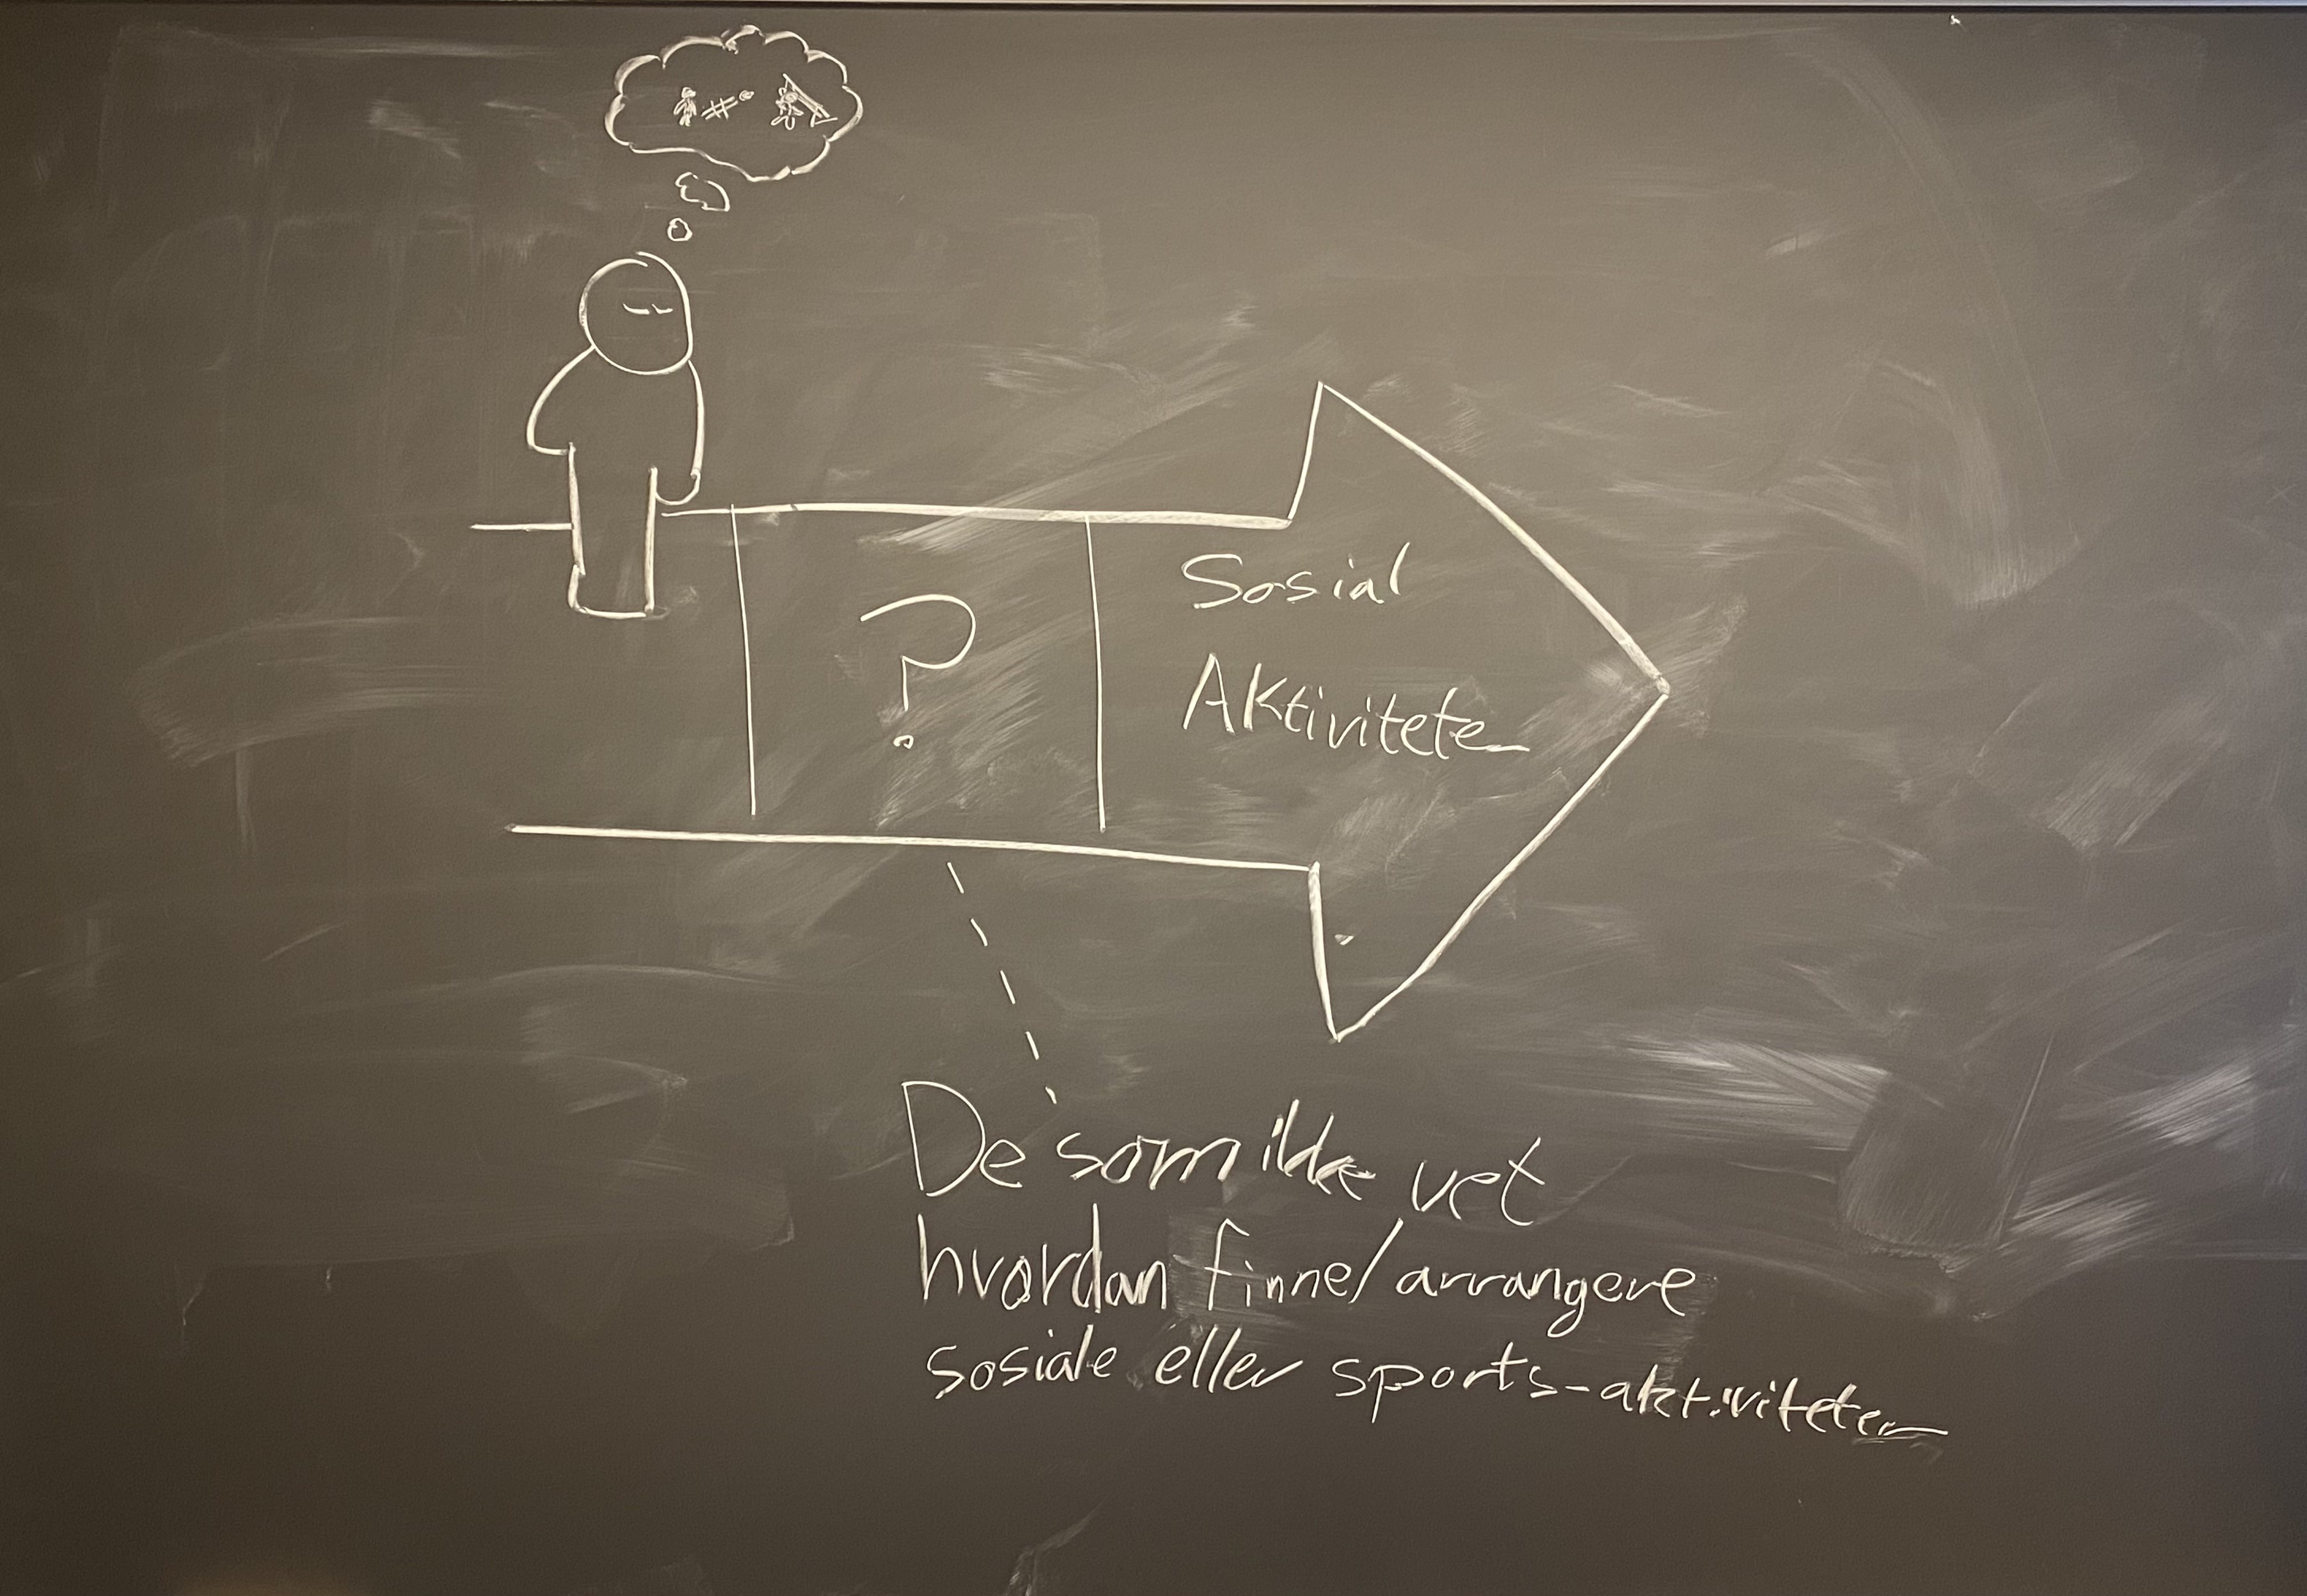 ?
Sosial
Aktiviteter
De som ikke vet
hvordan finne/arrangere
sosiale eller sports-aktiviteter